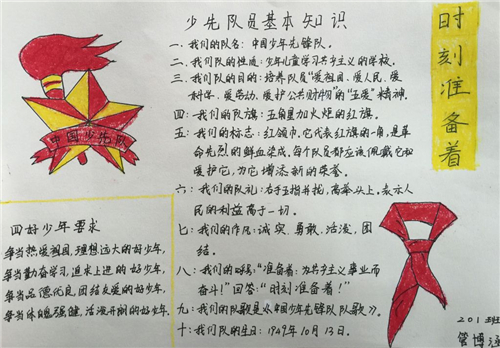 少先队员基本知识
一、我们的队名：中国少年先锋队。
二、我们队的性质：少年儿童学习共产主义的学校。
三、我们队的目的：培养队员"爱祖国、爱人民、爱
科学、爱劳动、爱护公共财物"的"五爱"精神。
四、我们的队旗：五角星加火炬的红旗。
五、我们的标志：红领巾。它代表红旗的一角，是革
命先烈的鲜血染成。每个队员都应该佩戴它和
爱护它，为它增添新的荣誉。
六、我们的队礼：右手五指并拢，高举头上，表示人
民的利益高于一切。
七、我们的作风：诚实、勇敢、活泼、团
结。
八、我们的呼号："准备着：为共产主义事业而
奋斗！"回答："时刻准备着！"
九、我们的队歌是《中国少年先锋队队歌》。
十、我们队的生日：1949年10月13日。
时刻准备着
中国少先队
四好少年要求
争当热爱祖国，理想远大的好少年，
争当勤奋学习，追求上进的好少年，
争当品德优良，团结友爱的好少年，
争当体魄强健，活泼开朗的好少年。
201班
管博